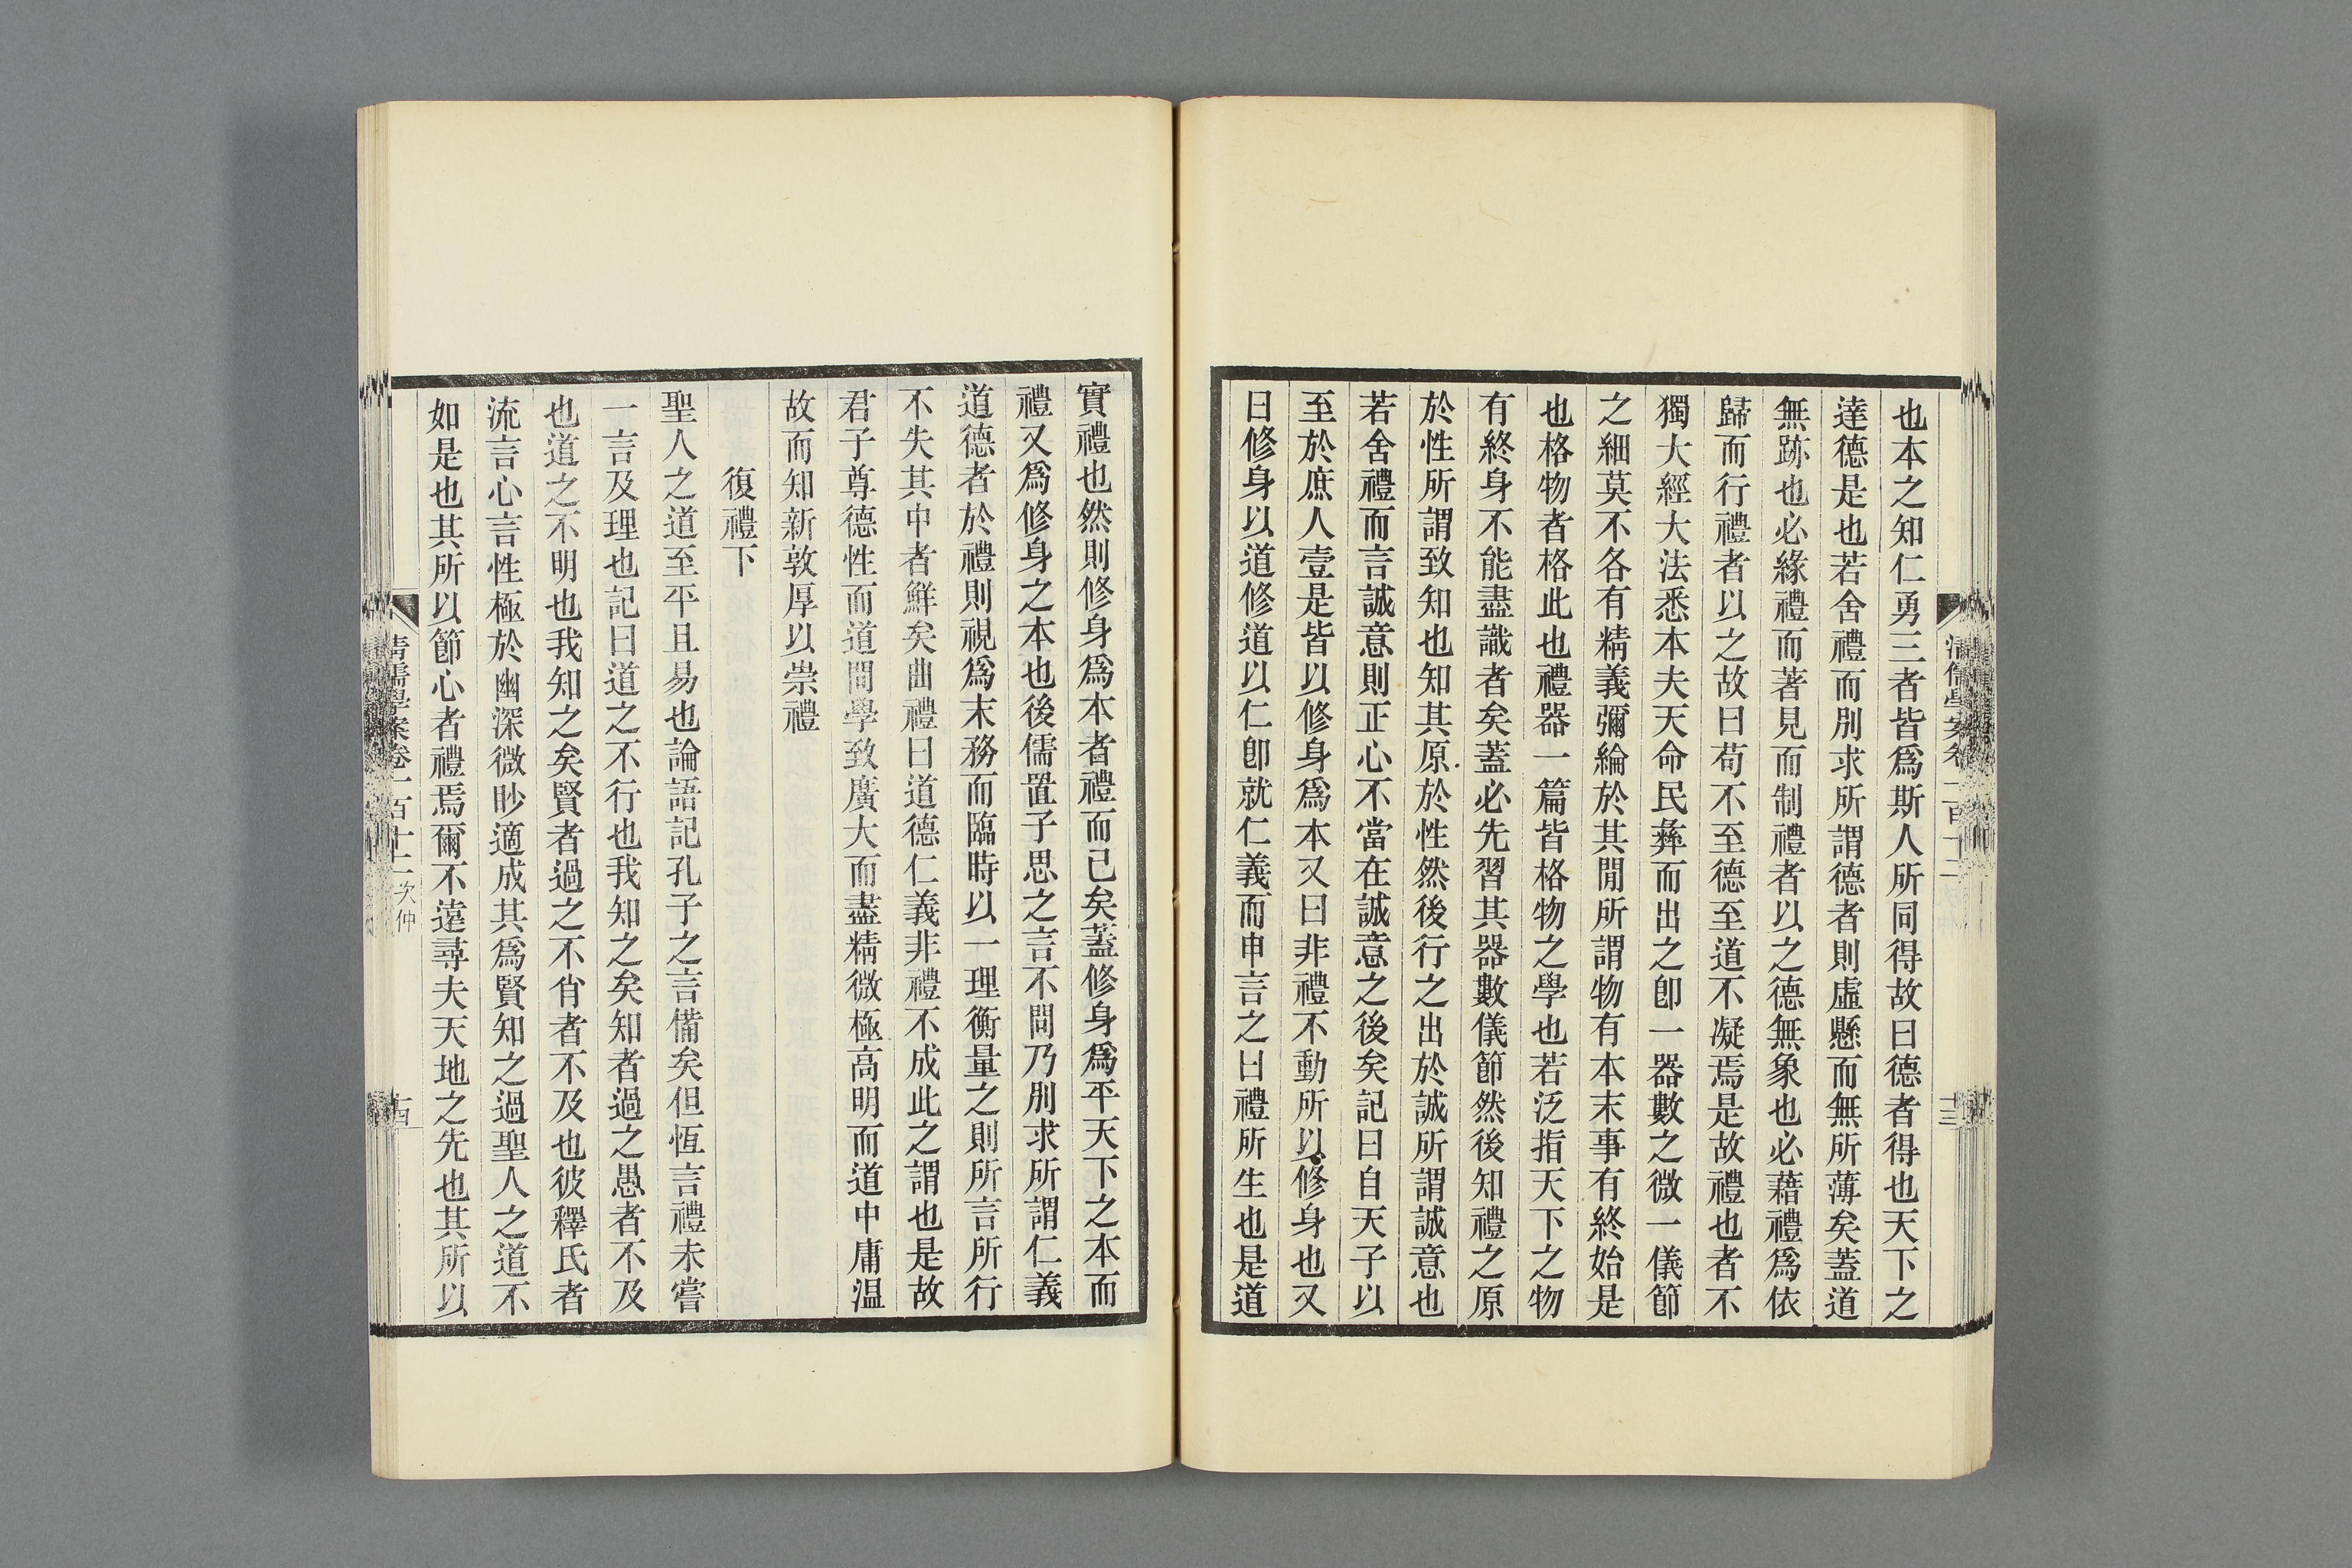 也本之知仁勇三者皆爲斯人所同得故曰德者得也天下之
達德是也若舍禮而別求所謂德者則虛懸而無所薄矣蓋道
無跡也必緣禮而著見而制禮者以之德無象也必藉禮爲依
歸而行禮者以之故曰苟不至德至道不凝焉是故禮也者不
獨大經大法悉本夫天命民彝而出之卽一器數之微一儀節
之細莫不各有精義彌綸於其閒所謂物有本末事有終始是
也格物者格此也禮器一篇皆格物之學也若泛指天下之物
有終身不能盡識者矣蓋必先習其器數儀節然後知禮之原
於性所謂致知也知其原於性然後行之出於誠所謂誠意也
若舍禮而言誠意則正心不當在誠意之後矣記曰自天子以
至於庶人壹是皆以修身爲本又曰非禮不動所以修身也又
曰修身以道修道以仁卽就仁義而申言之曰禮所生也是道
實禮也然則修身爲本者禮而已矣蓋修身爲平天下之本而
禮又爲修身之本也後儒置子思之言不問乃別求所謂仁義
道德者於禮則視爲末務而臨時以一理衡量之則所言所行
不失其中者鮮矣曲禮曰道德仁義非禮不成此之謂也是故
君子尊德性而道問學致廣大而盡精微極高明而道中庸溫
故而知新敦厚以崇禮
復禮下
聖人之道至平且易也論語記孔子之言備矣但恆言禮未嘗
一言及理也記曰道之不行也我知之矣知者過之愚者不及
也道之不明也我知之矣賢者過之不肖者不及也彼釋氏者
流言心言性極於幽深微眇適成其爲賢知之過聖人之道不
如是也其所以節心者禮焉爾不遠尋夫天地之先也其所以
清儒學案卷二百十二 次仲
十四